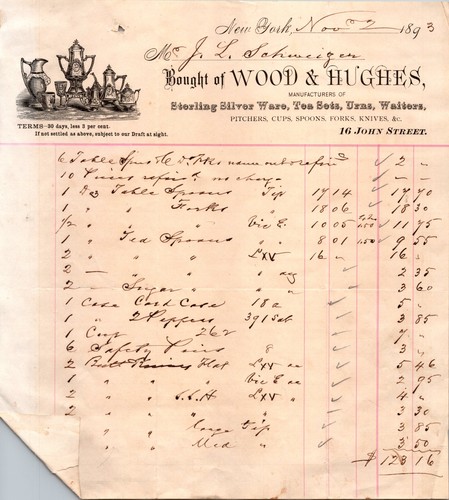 New York, Nov 2 1893
Mr J. L. Schweizer
Bought of WOOD & HUGHES,
MANUFACTURERS OF
Sterling Silver Ware, Tea Sets, Urns, Waiters,
PITCHERS, CUPS, SPOONS, FORKS, KNIVES, &c.
TERMS—30 days, less 3 per cent.
If not settled as above, subject to our Draft at sight.
16 JOHN STREET.
6 Table Spns 6 Do Fks ✓ 2 "
10 no charge ✓ — —
1 Dz Table Spoons Tip 17 14 ✓ 17 70
1 " " Forks " 18 06 ✓ 18 30
1/2 " " " Vic E. 10 05 1.50 ✓ 11 75
1 " Tea Spoons " " 8 01 1.50 ✓ 9 55
2 " " " Lxv 16 " ✓ 16 "
2 — " " " ✓ 2 35
2 — Sugar " " " ✓ 3 60
1 Case 18 a ✓ 5 "
1 " 2 Peppers 391 Sat ✓ 3 85
1 Cup 262 ✓ 7 "
6 Safety Pins 8 ✓ 3 "
2 Flat Lxv ✓ 5 46
1 " " " Vic E ✓ 2 95
2 " " Lxv " ✓ 4 "
2 " " " " ✓ 3 30
" " Large Tip ✓ 3 85
" " Med " ✓ 3 50
$ 123 16